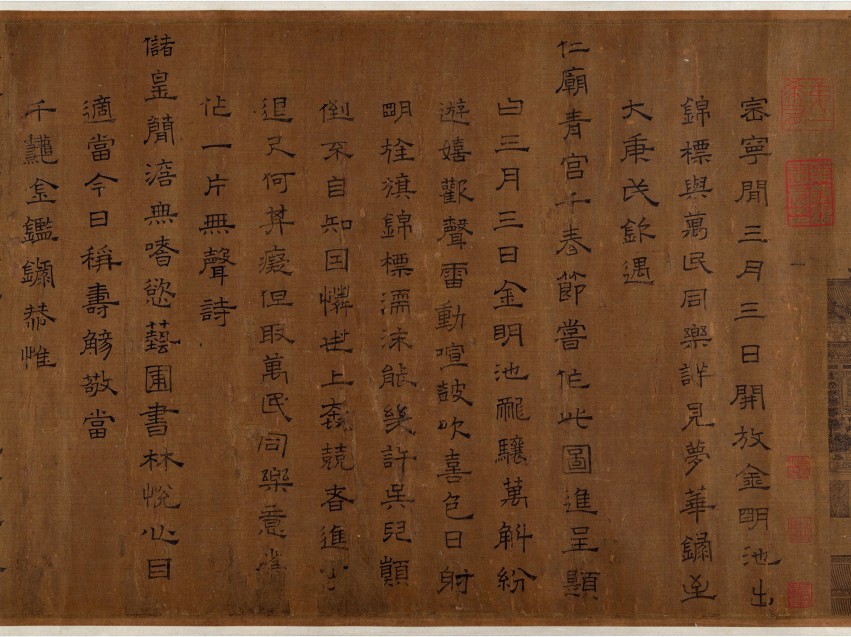 崇寧間三月三日開放金明池出
錦標與萬民同樂詳見夢華錄至
大庚戌欽遇
仁廟青宮千春節嘗作此圖進呈題
曰三月三日金明池龍驤萬斛紛
遊嬉歡聲雷動喧皷吹喜色日射
明桂旗錦標濡沫能幾許吳兒顛
倒不自知因憐世上奔競者進寸
退尺何其癡但取萬民同樂意
作一片無聲詩
儲皇簡澹無嗜慾藝圃書林悅心目
適當今日稱壽觴敬當
千龝金鑑錄恭惟